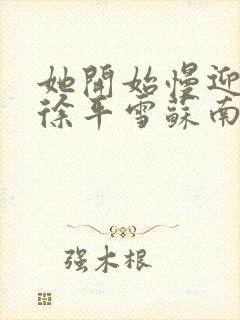 她開始慢迎
徐平雪蘇南
强木根